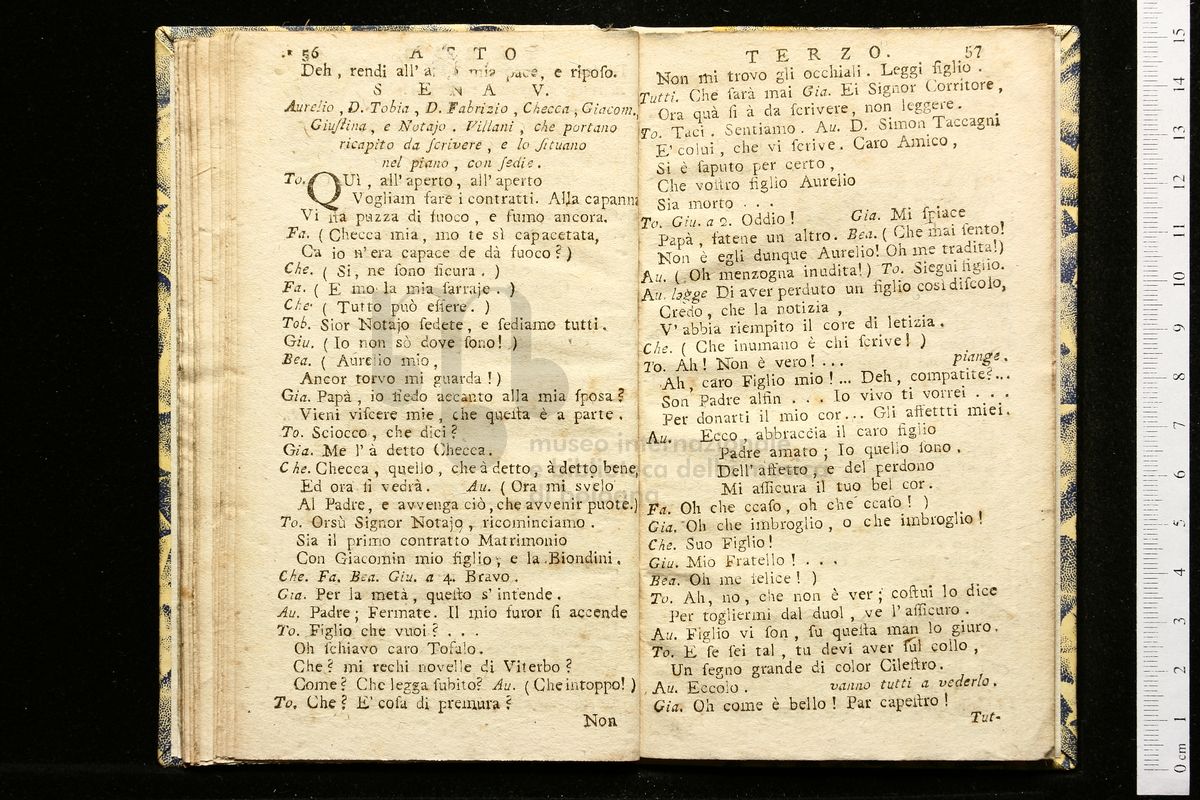 56 ATTO
Deh, rendi all' mia pace, e riposo.
SENA V.
Aurelio, D. Tobia, D. Fabrizio, Checca, Giacom.
Giuſtina, e Notajo. Villani, che portano
ricapito da ſcrivere, e lo ſituano
nel piano con ſedie.
To. QUì, all' aperto, all' aperto
Vogliam fare i contratti. Alla capanna
Vi ſta puzza di fuoco, e fumo ancora.
Fa. (Checca mia, mo te sì capacetata,
Ca io n'era capace de dà fuoco?)
Che. (Si, ne ſono ſicura.)
Fa. (E mo la mia ſarraje.)
Che. (Tutto può eſſere.)
Tob. Sior Notajo ſedete, e ſediamo tutti.
Giu. (Io non sò dove ſono!)
Bea. (Aurelio mio,
Ancor torvo mi guarda!)
Gia. Papà, io ſiedo accanto alla mia ſpoſa?
Vieni viſcere mie, che queſta è a parte.
To. Sciocco, che dici?
Gia. Me l' à detto Checca.
Che. Checca, quello, che à detto, à detto bene,
Ed ora ſi vedrà. Au. (Ora mi svelo
Al Padre, e avvenga ciò, che avvenir puote.)
To. Orsù Signor Notajo, ricominciamo.
Sia il primo contratto Matrimonio
Con Giacomin mio figlio, e la Biondini.
Che. Fa. Bea. Giu. a 4. Bravo.
Gia. Per la metà, queſto s' intende.
Au. Padre; Fermate. Il mio furor ſi accende
To. Figlio che vuoi? . . .
Oh ſchiavo caro Tofalo.
Che? mi rechi novelle di Viterbo?
Come? Che legga tutto? Au. (Che intoppo!)
To. Che? E' coſa di premura?
Non
TERZO. 57
Non mi trovo gli occhiali. Leggi figlio
Tutti. Che ſarà mai Gia. Ei Signor Corritore,
Ora quà ſi à da ſcrivere, non leggere.
To. Taci. Sentiamo. Au. D. Simon Taccagni
E' colui, che vi ſcrive. Caro Amico,
Si è ſaputo per certo,
Che voſtro figlio Aurelio
Sia morto . . .
To. Giu. a 2. Oddio! Gia. Mi ſpiace
Papà, fatene un altro. Bea. (Che mai ſento!
Non è egli dunque Aurelio! Oh me tradita!)
Au. (Oh menzogna inudita!) To. Siegui figlio.
Au. legge Di aver perduto un figlio così diſcolo,
Credo, che la notizia,
V' abbia riempito il core di letizia.
Che. (Che inumano è chi ſcrive!)
To. Ah! Non è vero! ... piange.
Ah, caro Figlio mio! ... Deh, compatite? ...
Son Padre alfin . . . Io vivo ti vorrei . . .
Per donarti il mio cor... Gli affettti miei.
Au. Ecco, abbraccia il caro figlio
Padre amato; Io quello ſono.
Dell' affetto, e del perdono
Mi aſſicura il tuo bel cor.
Fa. Oh che ccaſo, oh che ccaſo!)
Gia. Oh che imbroglio, o che imbroglio!
Che. Suo Figlio!
Giu. Mio Fratello! . . .
Bea. Oh me felice!)
To. Ah, no, che non è ver; coſtui lo dice
Per togliermi dal duol, ve l' aſſicuro.
Au. Figlio vi ſon, ſu queſta man lo giuro.
To. E ſe ſei tal, tu devi aver ſul collo,
Un ſegno grande di color Cileſtro.
Au. Eccolo. vanno tutti a vederlo.
Gia. Oh come è bello! Par capeſtro!
Tut-
museo internazionale
e biblioteca della musica
di bologna
0 cm 1 2 3 4 5 6 7 8 9 10 11 12 13 14 15